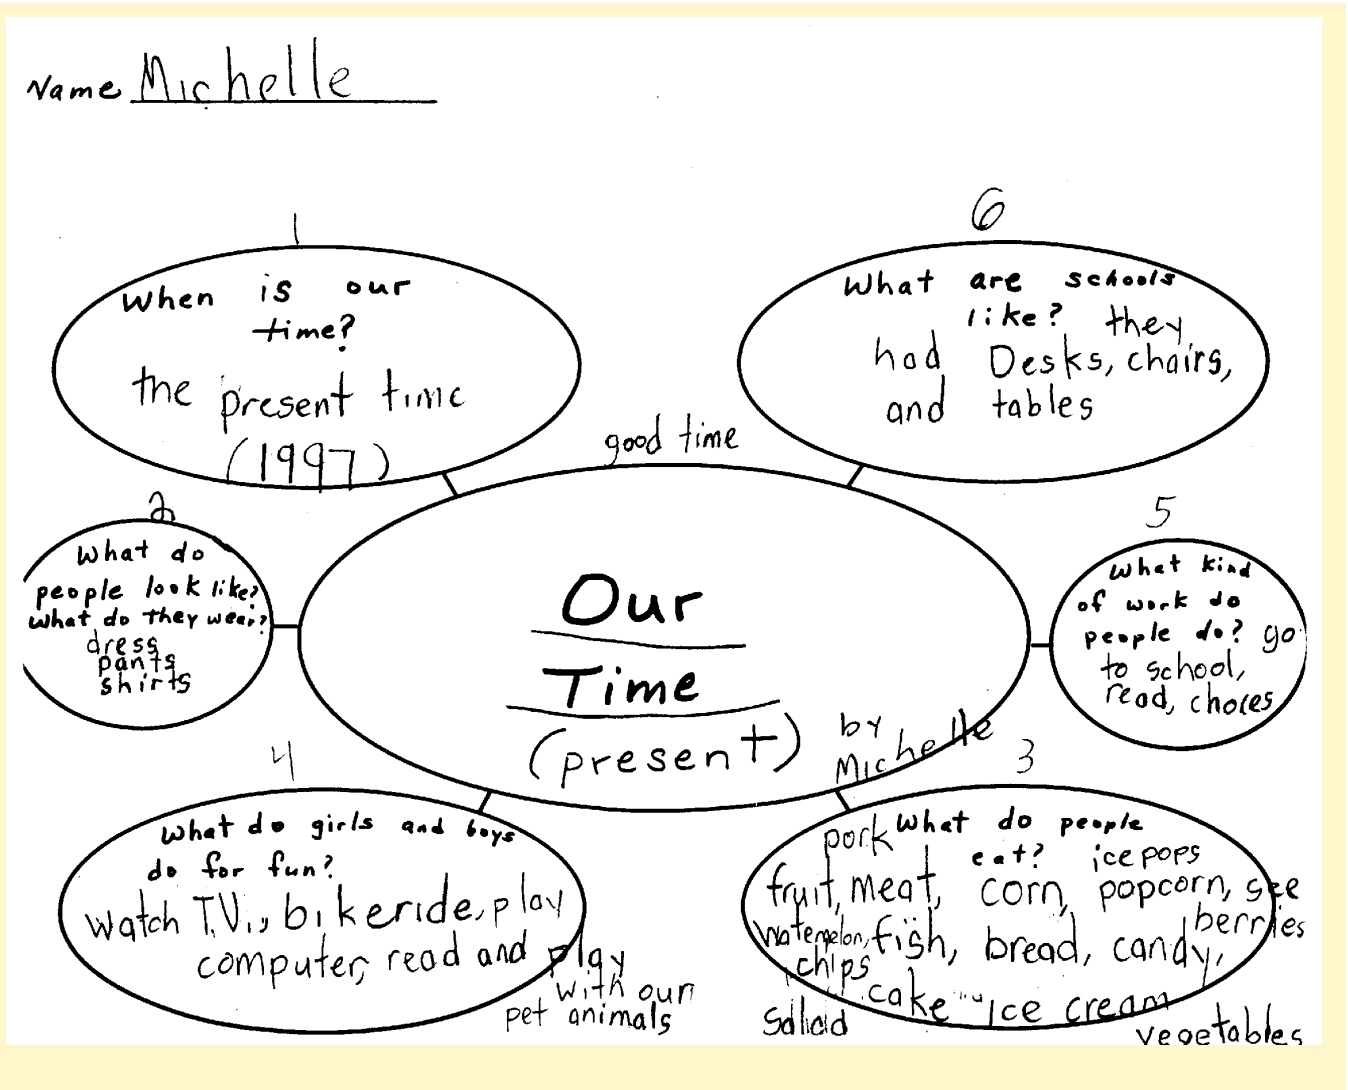 Name Michelle
1
When is our
time?
the present time
(1997)
6
What are schools
like? they
had Desks, chairs,
and tables
good time
Our
Time
(present)
by
Michelle
2
What do
people look like?
What do they wear?
dress
pants
shirts
5
What kind
of work do
people do? go
to school,
read, choices
4
What do girls and boys
do for fun?
watch T.V., bikeride, play
computer, read and play
with our
pet animals
3
What do people
pork
eat? ice pops
fruit, meat, corn, popcorn,
berries
watermelon, fish, bread, candy,
chips
cake ice cream
vegetables